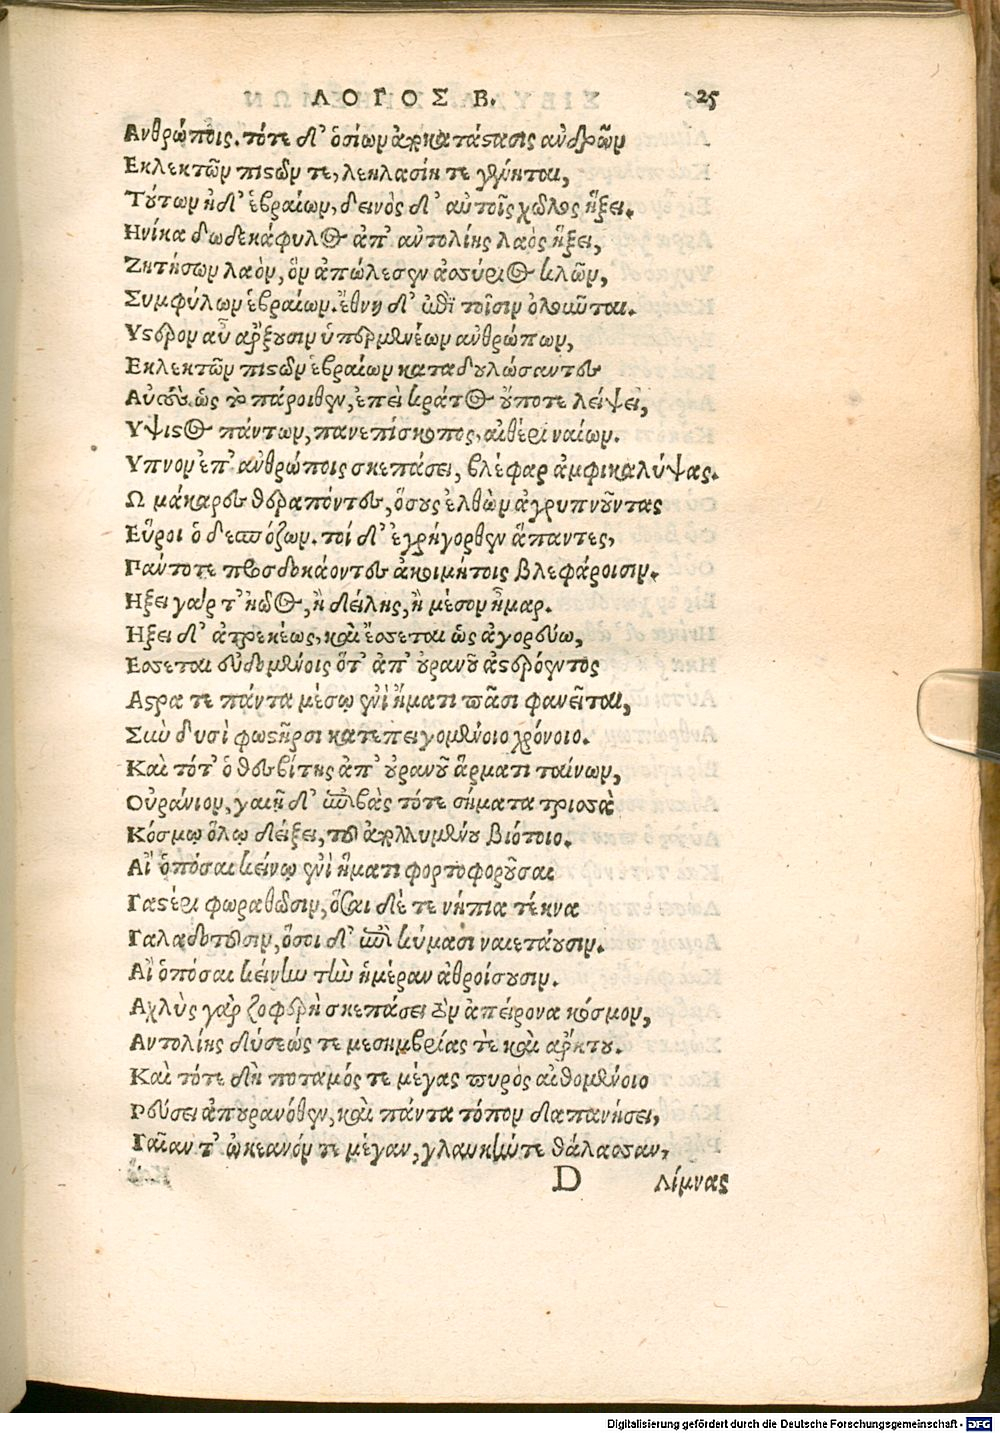 ΛΟΓΟΣ Β. 25
Ανθρώποις. τότε δ' ὁσίων ἀκατάστασις ἀνδρῶν
Εκλεκτῶν πιστῶν τε, λεηλασίη τε γένηται,
Τούτων ἠδ' ἑβραίων, δεινὸς δ' αὐτοῖς χόλος ἥξει.
Ηνίκα δωδεκάφυλος ἀπ' ἀντολίης λαὸς ἥξει,
Ζητήσων λαὸν, ὃν ἀπώλεσεν ἀσσύριος κλῶν,
Συμφύλων ἑβραίων. ἔθνη δ' ἐπὶ τοῖσιν ὀλοῦνται.
Υστερον αὖ ἄρξουσιν ὑπερμενέων ἀνθρώπων,
Εκλεκτῶν πιστῶν ἑβραίων καταδουλώσαντες
Αὐτοὺς ὡς τὸ πάροιθεν, ἐπεὶ κράτος οὔποτε λείψει,
Υψιστος πάντων, πανεπίσκοπος, αἰθέρι ναίων.
Υπνον ἐπ' ἀνθρώποις σκεπάσει, βλέφαρ ἀμφικαλύψας.
Ω μάκαρες θεράποντες, ὅσους ἐλθὼν ἀγρυπνοῦντας
Εὕροι ὁ δεσπόζων. τοί δ' ἐγρήγορθεν ἅπαντες,
Πάντοτε προσδοκάοντες ἀκοιμήτοις βλεφάροισιν.
Ηξει γὰρ τ' ἠῶος, ἢ δείλης, ἢ μέσον ἦμαρ.
Ηξει δ' ἀτρεκέως, καὶ ἔσσεται ὡς ἀγορεύω,
Εσσεται εὑδομένοις ὅτ' ἀπ' οὐρανοῦ ἀστερόεντος
Αστρα τε πάντα μέσῳ ἐνὶ ἤματι πᾶσι φανεῖται,
Σὺν δυσὶ φωστῆρσι κατεπειγομένοιο χρόνοιο.
Καὶ τότ' ὁ θεσβίτης ἀπ' οὐρανοῦ ἅρματι ταίνων,
Οὐράνιον, γαίῃ δ' ἐπιβὰς τότε σήματα τρισσὰ
Κόσμῳ ὅλῳ δείξει, τε ἀπολλυμένου βιότοιο.
Αἲ ὁπόσαι κείνῳ ἐνὶ ἤματι φορτοφοροῦσαι
Γαστέρι φωραθῶσιν, ὅσαι δέ τε νήπια τέκνα
Γαλακτοῦσιν, ὅσοι δ' ἐπὶ κύμασι ναιετάουσιν.
Αἲ ὁπόσαι κείνην τὴν ἡμέραν ἀθροίσουσιν.
Αχλὺς γὰρ ζοφερὴ σκεπάσει τὸν ἀπείρονα κόσμον,
Αντολίης δύσεώς τε μεσημβρίας τὲ καὶ ἄρκτου.
Καὶ τότε δὴ ποταμός τε μέγας πυρὸς αἰθομένοιο
Ρεύσει ἀπουρανόθεν, καὶ πάντα τόπον δαπανήσει,
Γαῖαν τ' ὠκεανόν τε μέγαν, γλαυκήν τε θάλασσαν,
D Λίμνας
Digitalisierung gefördert durch die Deutsche Forschungsgemeinschaft - DFG